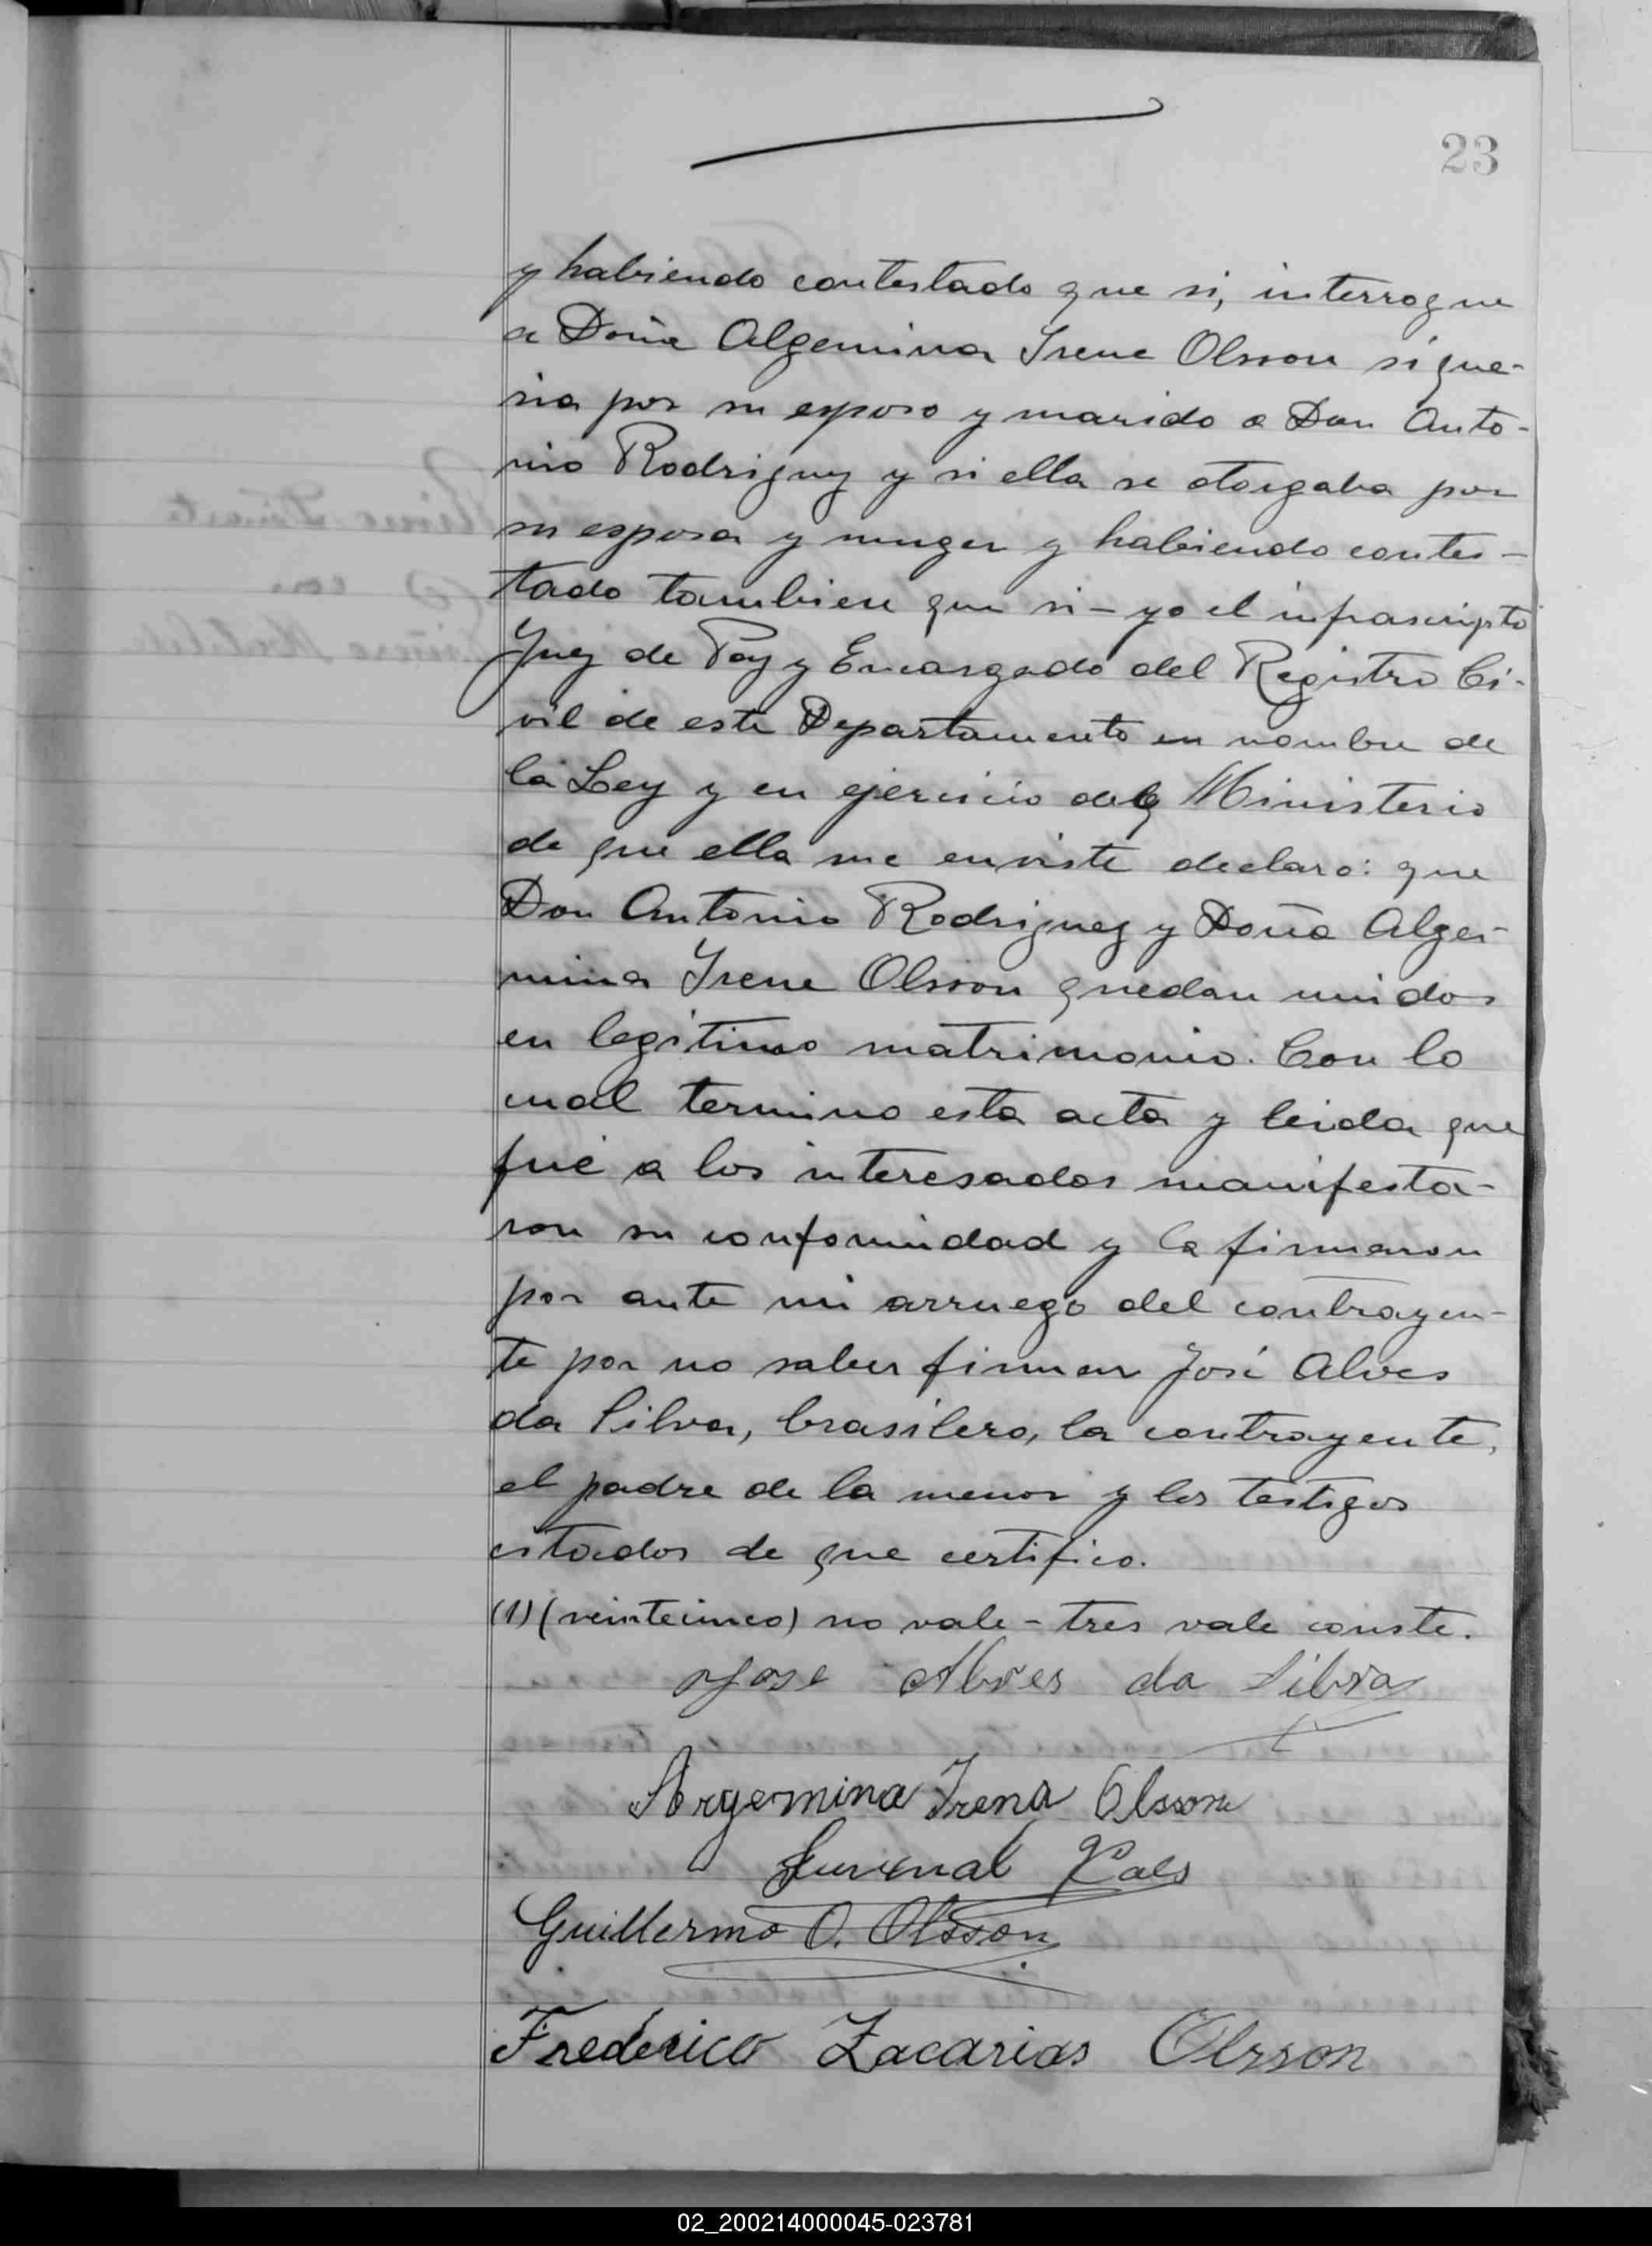 23
y habiendo contestado que si, interrogue
a Doña Algemina Irene Olsson si que-
ria por su esposo y marido a Don Anto-
nio Rodriguez y si ella se otorgaba por
su esposa y muger y habiendo contes-
tado tambien que si - yo el infrascripto
Juez de Paz y Encargado del Registro Ci-
vil de este Departamento en nombre de
la Ley y en ejercicio del Ministerio
de que ella me enviste declaro: que
Don Antonio Rodriguez y Doña Alge-
mina Irene Olsson quedan unidos
en legitimo matrimonio. Con lo
cual termino esta acta y leida que
fué a los interesados manifesta-
ron su conformidad y la firmaron
por ante mi arruego del contrayen-
te por no saber firmar José Alves
da Silva, brasilero, la contrayente,
el padre de la menor y los testigos
citados de que certifico.
(1) (veinticinco) no vale - tres vale conste.
Jose Alves da Silva
Argemina Irena Olsson
Juvenal Paes
Guillermo O. Olsson
Frederico Zacarias Olsson
02_200214000045-023781